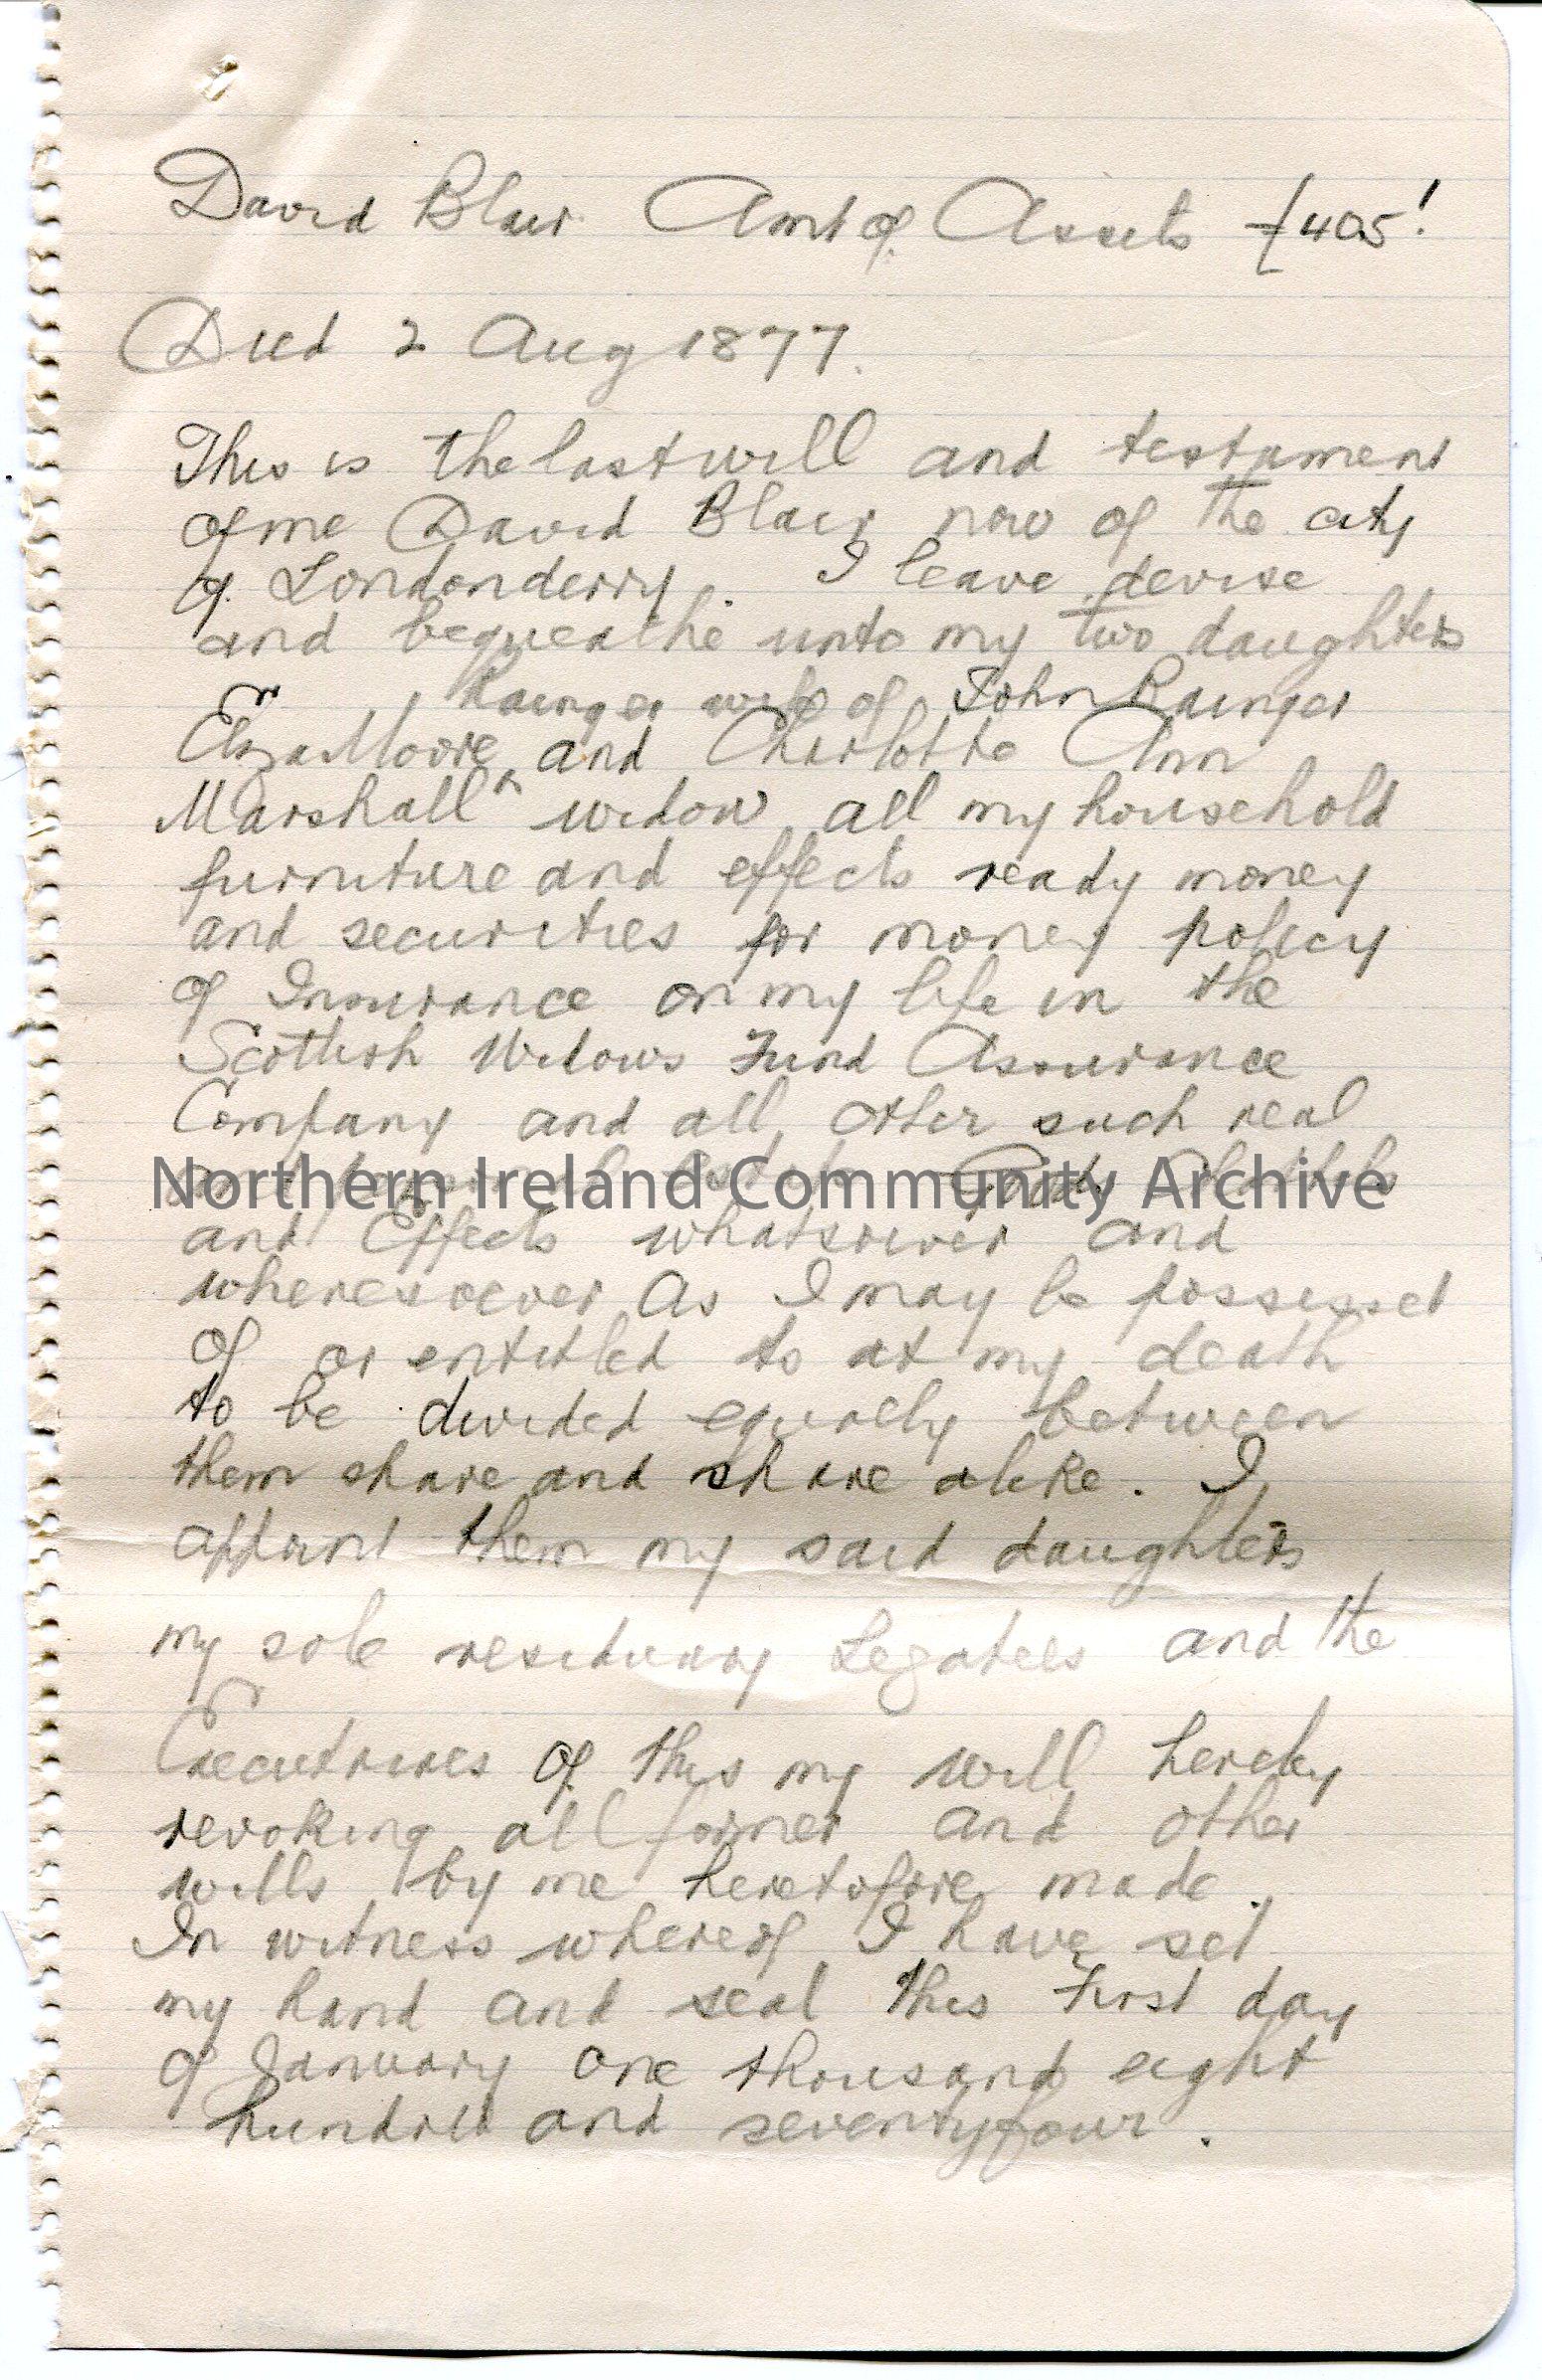 David Blair Amt of Assets £405!
Died 2 Aug 1877.
This is the last will and testament
of me David Blair now of the city
of Londonderry. I leave devise
and bequeathe unto my two daughters
Rainger wife of John Rainger
Eliza Moore and Charlotte Ann
Marshall ^ widow all my household
furniture and effects ready money
and securities for money policy
of Insurance on my life in the
Scottish Widows Fund Assurance
Company and all other such real
Northern Ireland Community Archive
and Chattels
and Effects whatsoever and
wheresoever as I may be possessed
of or entitled to at my death
to be divided equally between
them share and share alike. I
appoint them my said daughters
my sole residuary Legatees and the
Executrixes of this my will hereby
revoking all former and other
wills by me heretofore made.
In witness whereof I have set
my hand and seal this First day
of January one thousand eight
hundred and seventyfour.